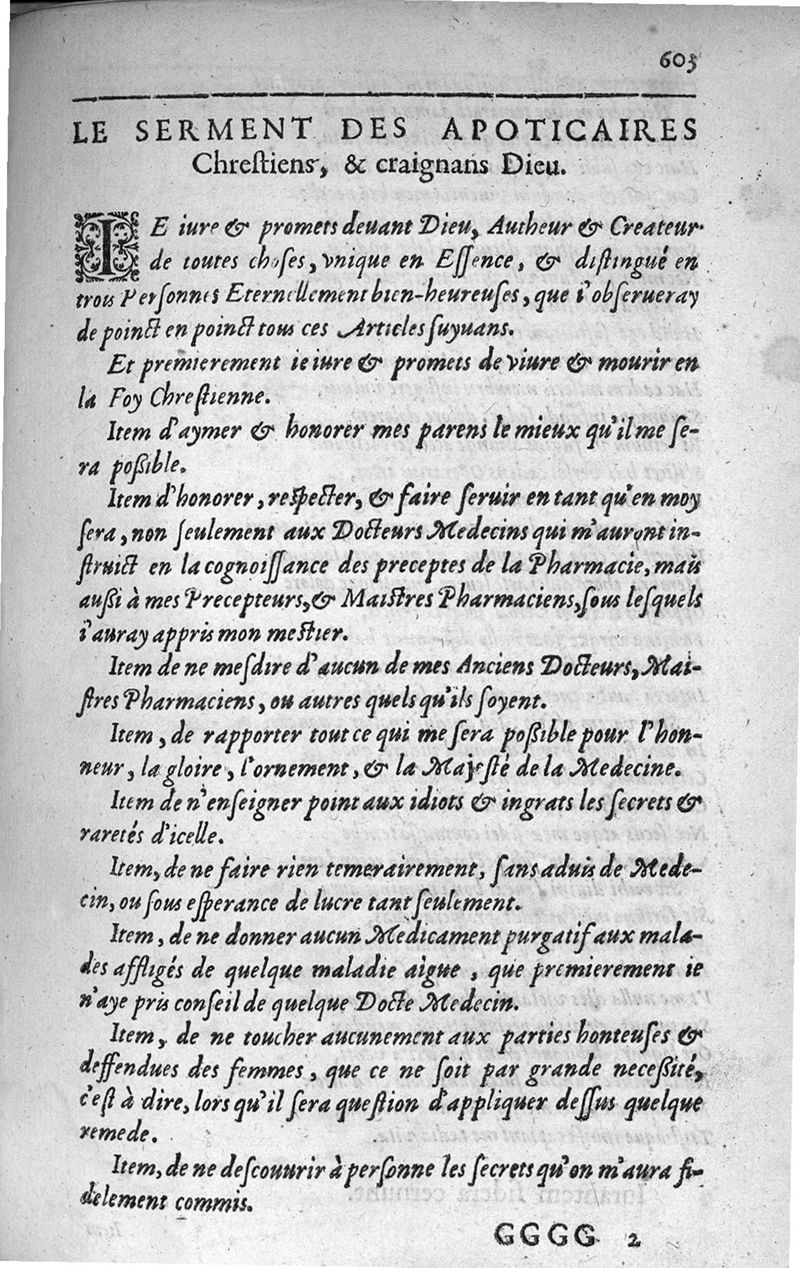 603
LE SERMENT DES APOTICAIRES
Chreſtiens, & craignans Dieu.
IE iure & promets deuant Dieu, Autheur & Createur
de toutes choſes, vnique en Eſſence, & diſtingué en
trois Perſonnes Eternellement bien-heureuſes, que i'obſerueray
de poinct en poinct tous ces Articles ſuyuans.
Et premierement ie iure & promets de viure & mourir en
la Foy Chreſtienne.
Item d'aymer & honorer mes parens le mieux qu'il me ſe-
ra poßible.
Item d'honorer, reſpecter, & faire ſeruir en tant qu'en moy
ſera, non ſeulement aux Docteurs Medecins qui m'auront in-
ſtruict en la cognoiſſance des preceptes de la Pharmacie, mais
außi à mes Precepteurs, & Maiſtres Pharmaciens, ſous leſquels
i'auray appris mon meſtier.
Item de ne meſdire d'aucun de mes Anciens Docteurs, Mai-
ſtres Pharmaciens, ou autres quels qu'ils ſoyent.
Item, de rapporter tout ce qui me ſera poßible pour l'hon-
neur, la gloire, l'ornement, & la Majeſté de la Medecine.
Item de n'enſeigner point aux idiots & ingrats les ſecrets &
raretés d'icelle.
Item, de ne faire rien temerairement, ſans aduis de Mede-
cin, ou ſous eſperance de lucre tant ſeulement.
Item, de ne donner aucun Medicament purgatif aux mala-
des affligés de quelque maladie aigue, que premierement ie
n'aye pris conſeil de quelque Docte Medecin.
Item, de ne toucher aucunement aux parties honteuſes &
deffendues des femmes, que ce ne ſoit par grande neceßité,
c'eſt à dire, lors qu'il ſera queſtion d'appliquer deſſus quelque
remede.
Item, de ne deſcouurir à perſonne les ſecrets qu'on m'aura fi-
delement commis.
GGGG 2